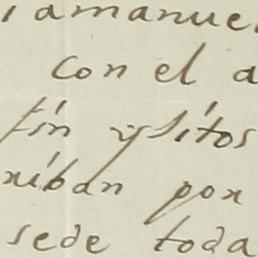 amanue
con el a
fin y sitos
xiban por
sede toda